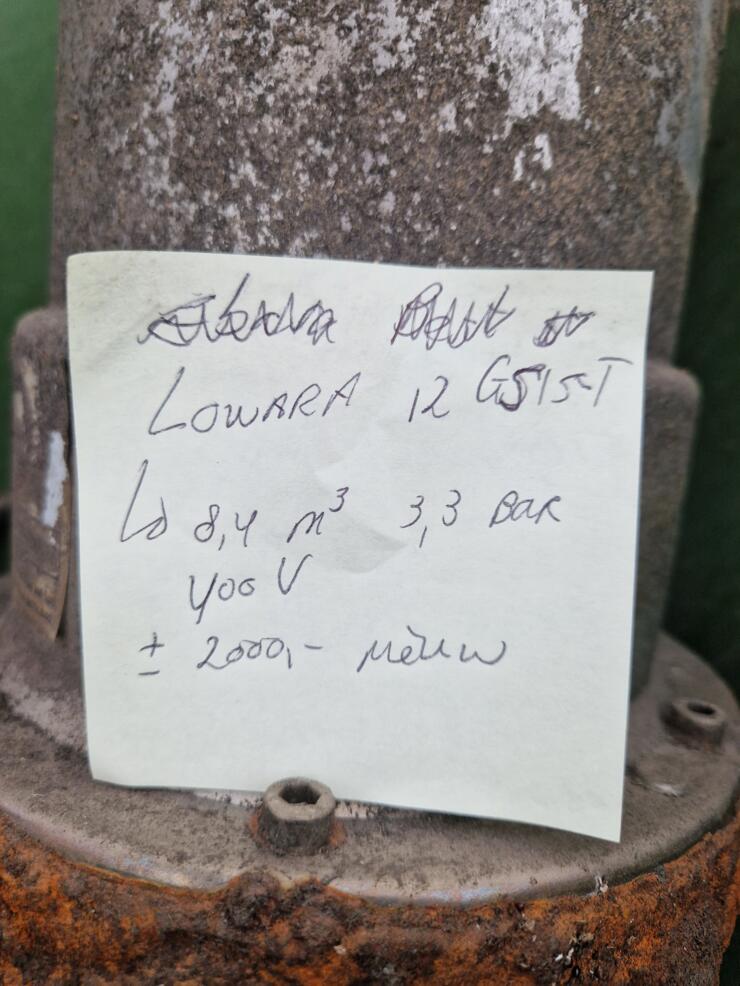 LOWARA 12 GS15T
↳ 8,4 m³ 3,3 BAR
400 V
± 2000,- nieuw